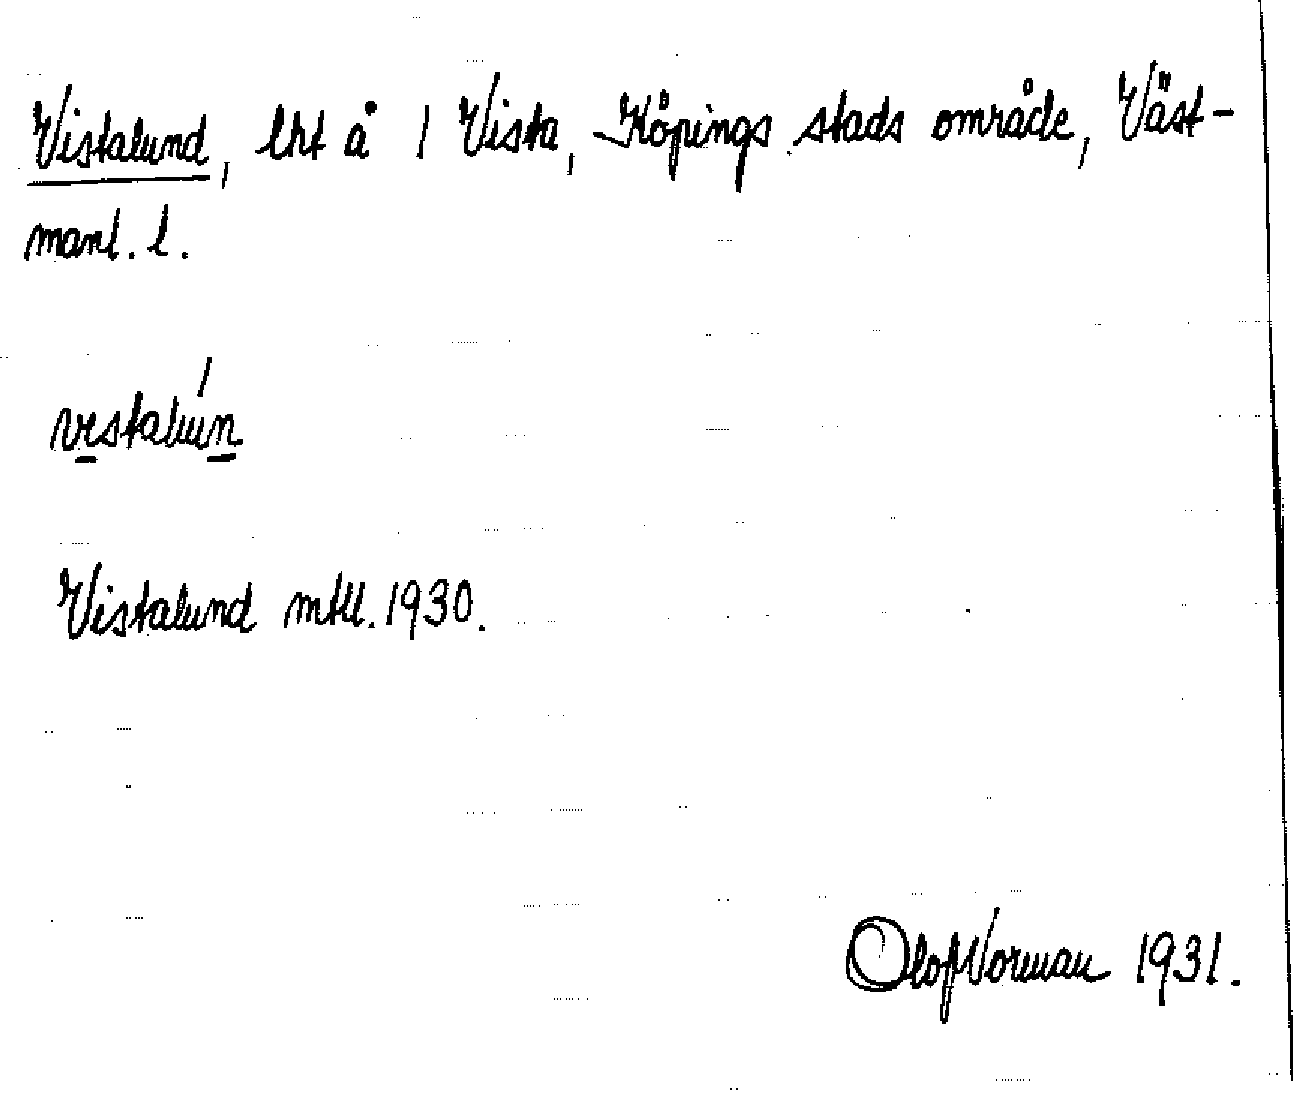 Vistalund, lht å 1 Vista, Köpings stads område, Väst-
manl. l.
vistalún
Vistalund mtll. 1930.
Olof Norman 1931.